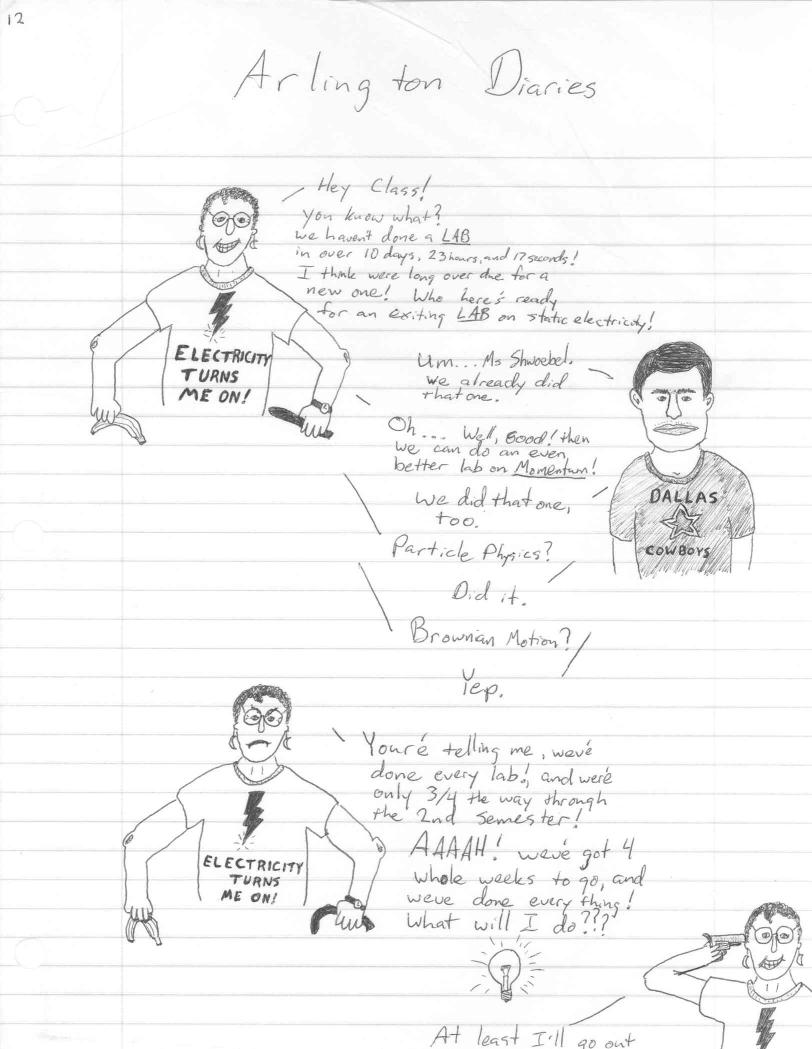 12
Arlington Diaries
Hey Class!
You know what?
we haven't done a LAB
in over 10 days, 23 hours, and 17 seconds!
I think were long over due for a
new one! Who here's ready
for an exiting LAB on static electricity!
ELECTRICITY
TURNS
ME ON!
Um... Ms Shwoebel.
we already did
that one.
Oh... Well, Good! then
we can do an even
better lab on Momentum!
We did that one,
too.
DALLAS
COWBOYS
Particle Physics?
Did it.
Brownian Motion?
Yep.
Youré telling me, wevé
done every lab!, and weré
only 3/4 the way through
the 2nd semester!
AAAAH! wevé got 4
whole weeks to go, and
wevé done every thing!
What will I do???
ELECTRICITY
TURNS
ME ON!
At least I'll go out